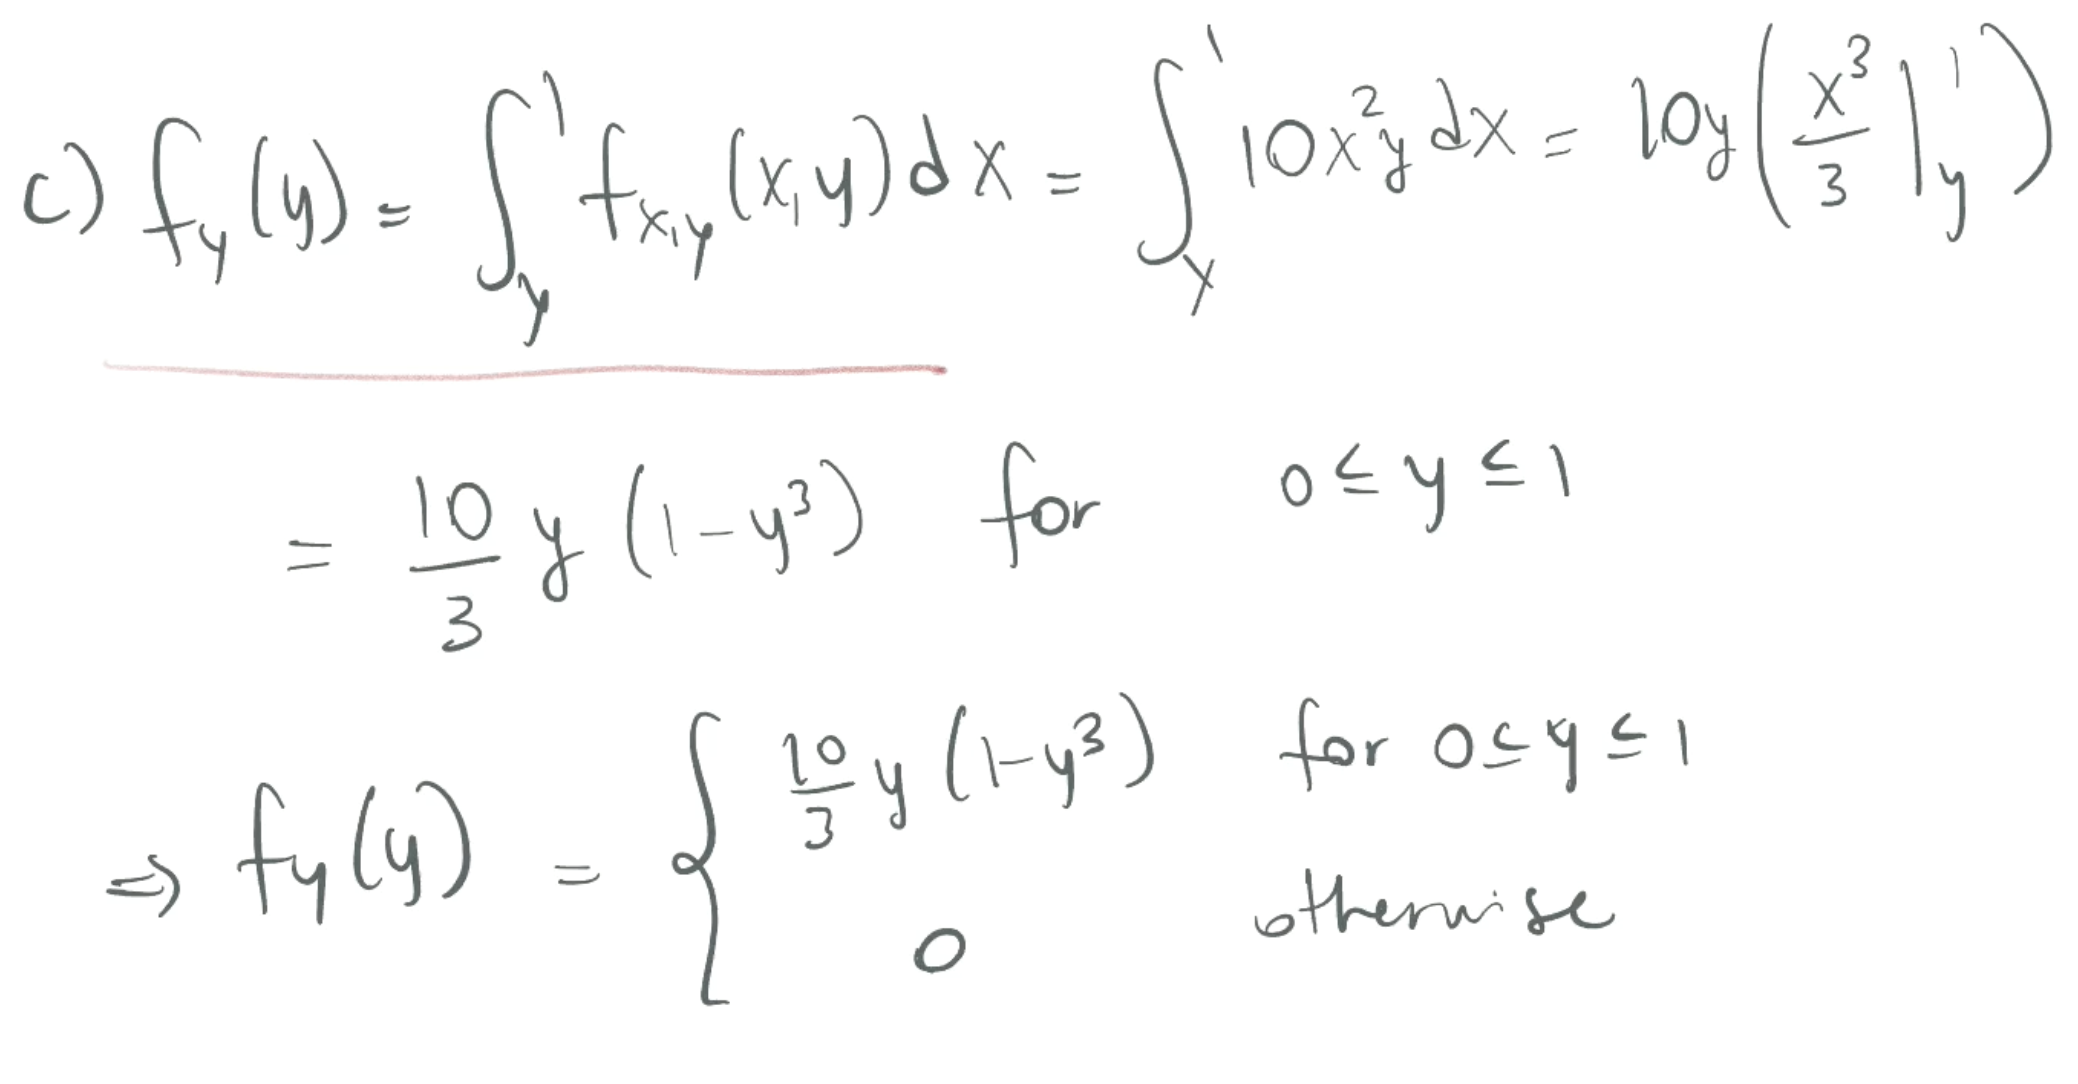 c) f_y(y) = ∫_y^1 f_{x,y}(x,y)dx = ∫_x^1 10x²y dx = 10y(x³/3 |_y^1)
= 10/3 y (1-y³) for 0 ≤ y ≤ 1
⇒ f_y(y) = { 10/3 y (1-y³) for 0 ≤ y ≤ 1
0 otherwise